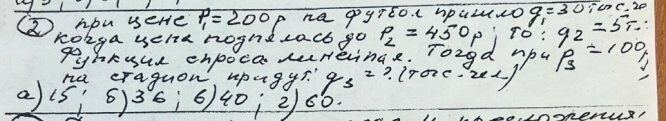 ② при цене P₁=200р на футбол пришло q₁=30тыс.че
когда цена поднялась до P₂=450р, то: q₂=5т.
Функция спроса линейная. Тогда при P₃=100р
на стадион придут: q₃=? (тыс.чел)
а) 15; б) 36; в) 40; г) 60.